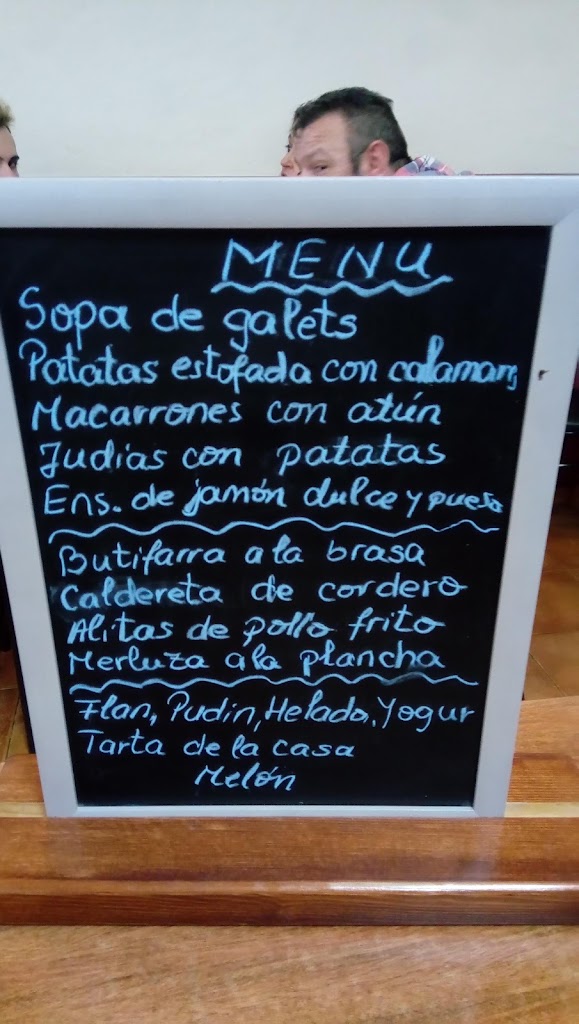 MENU
Sopa de galets
Patatas estofada con calamars
Macarrones con atún
Judías con patatas
Ens. de jamón dulce y queso
Butifarra a la brasa
Caldereta de cordero
Alitas de pollo frito
Merluza a la plancha
Flan, Pudin, Helado, Yogur
Tarta de la casa
Melón